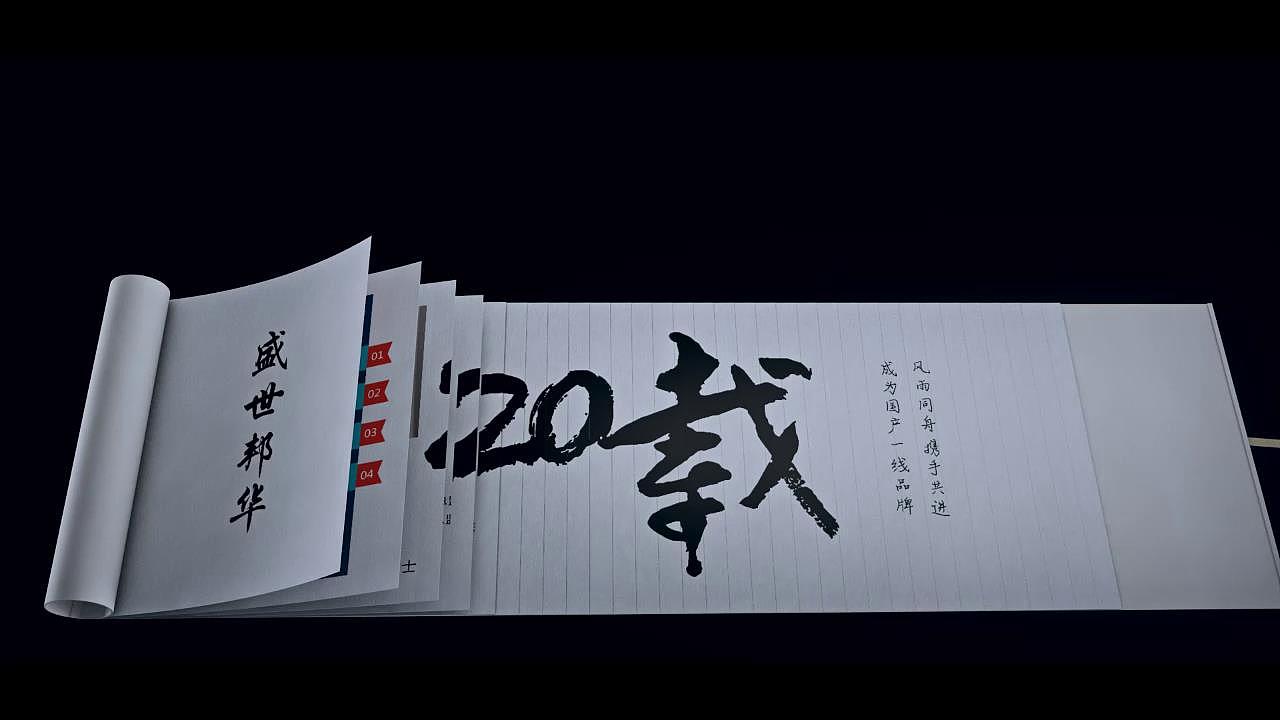 盛世邦华
01
02
03
04
士
20载
风雨同舟 携手共进
成为国产一线品牌